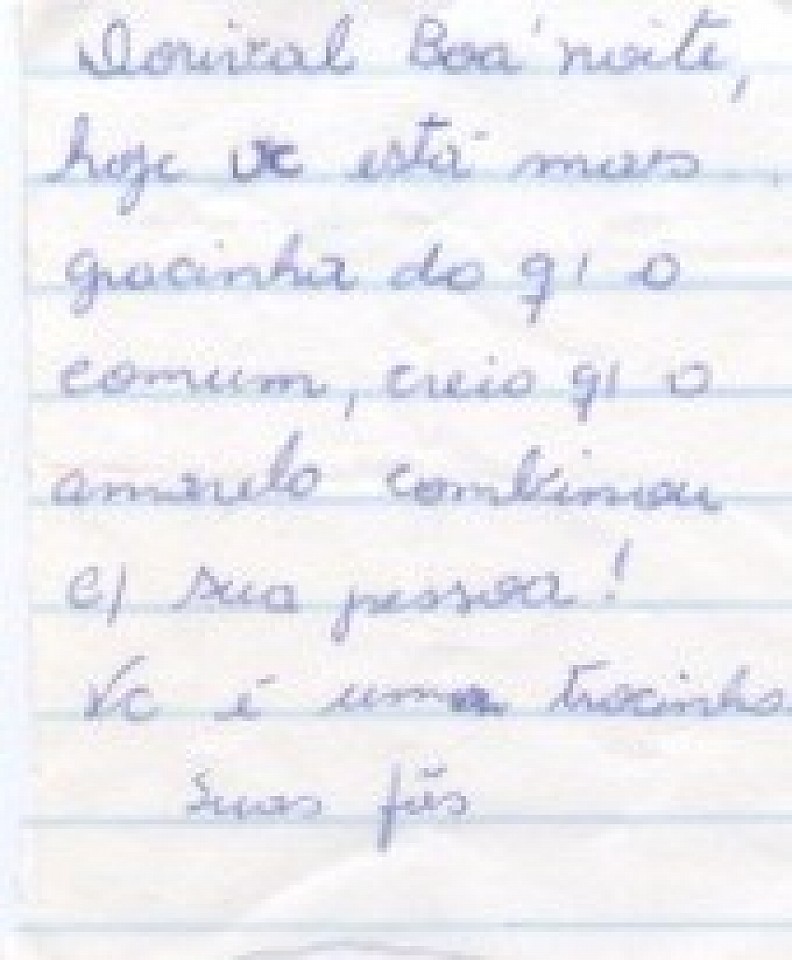 Dorival Boa noite,
hoje vc está mais
gracinha do q' o
comum, creio q' o
amarelo combinou
c/ sua pessoa!
Vc é uma tracinha
Suas fãs